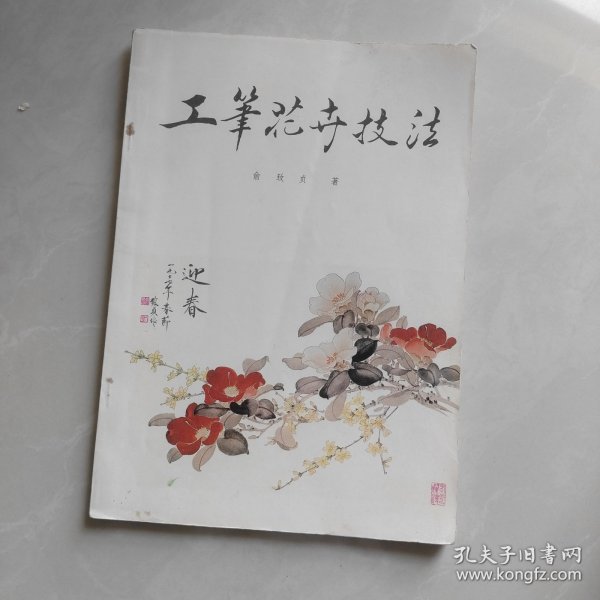 工筆花卉技法
俞致贞 著
迎春
孔夫子旧書网
www.kongfz.com